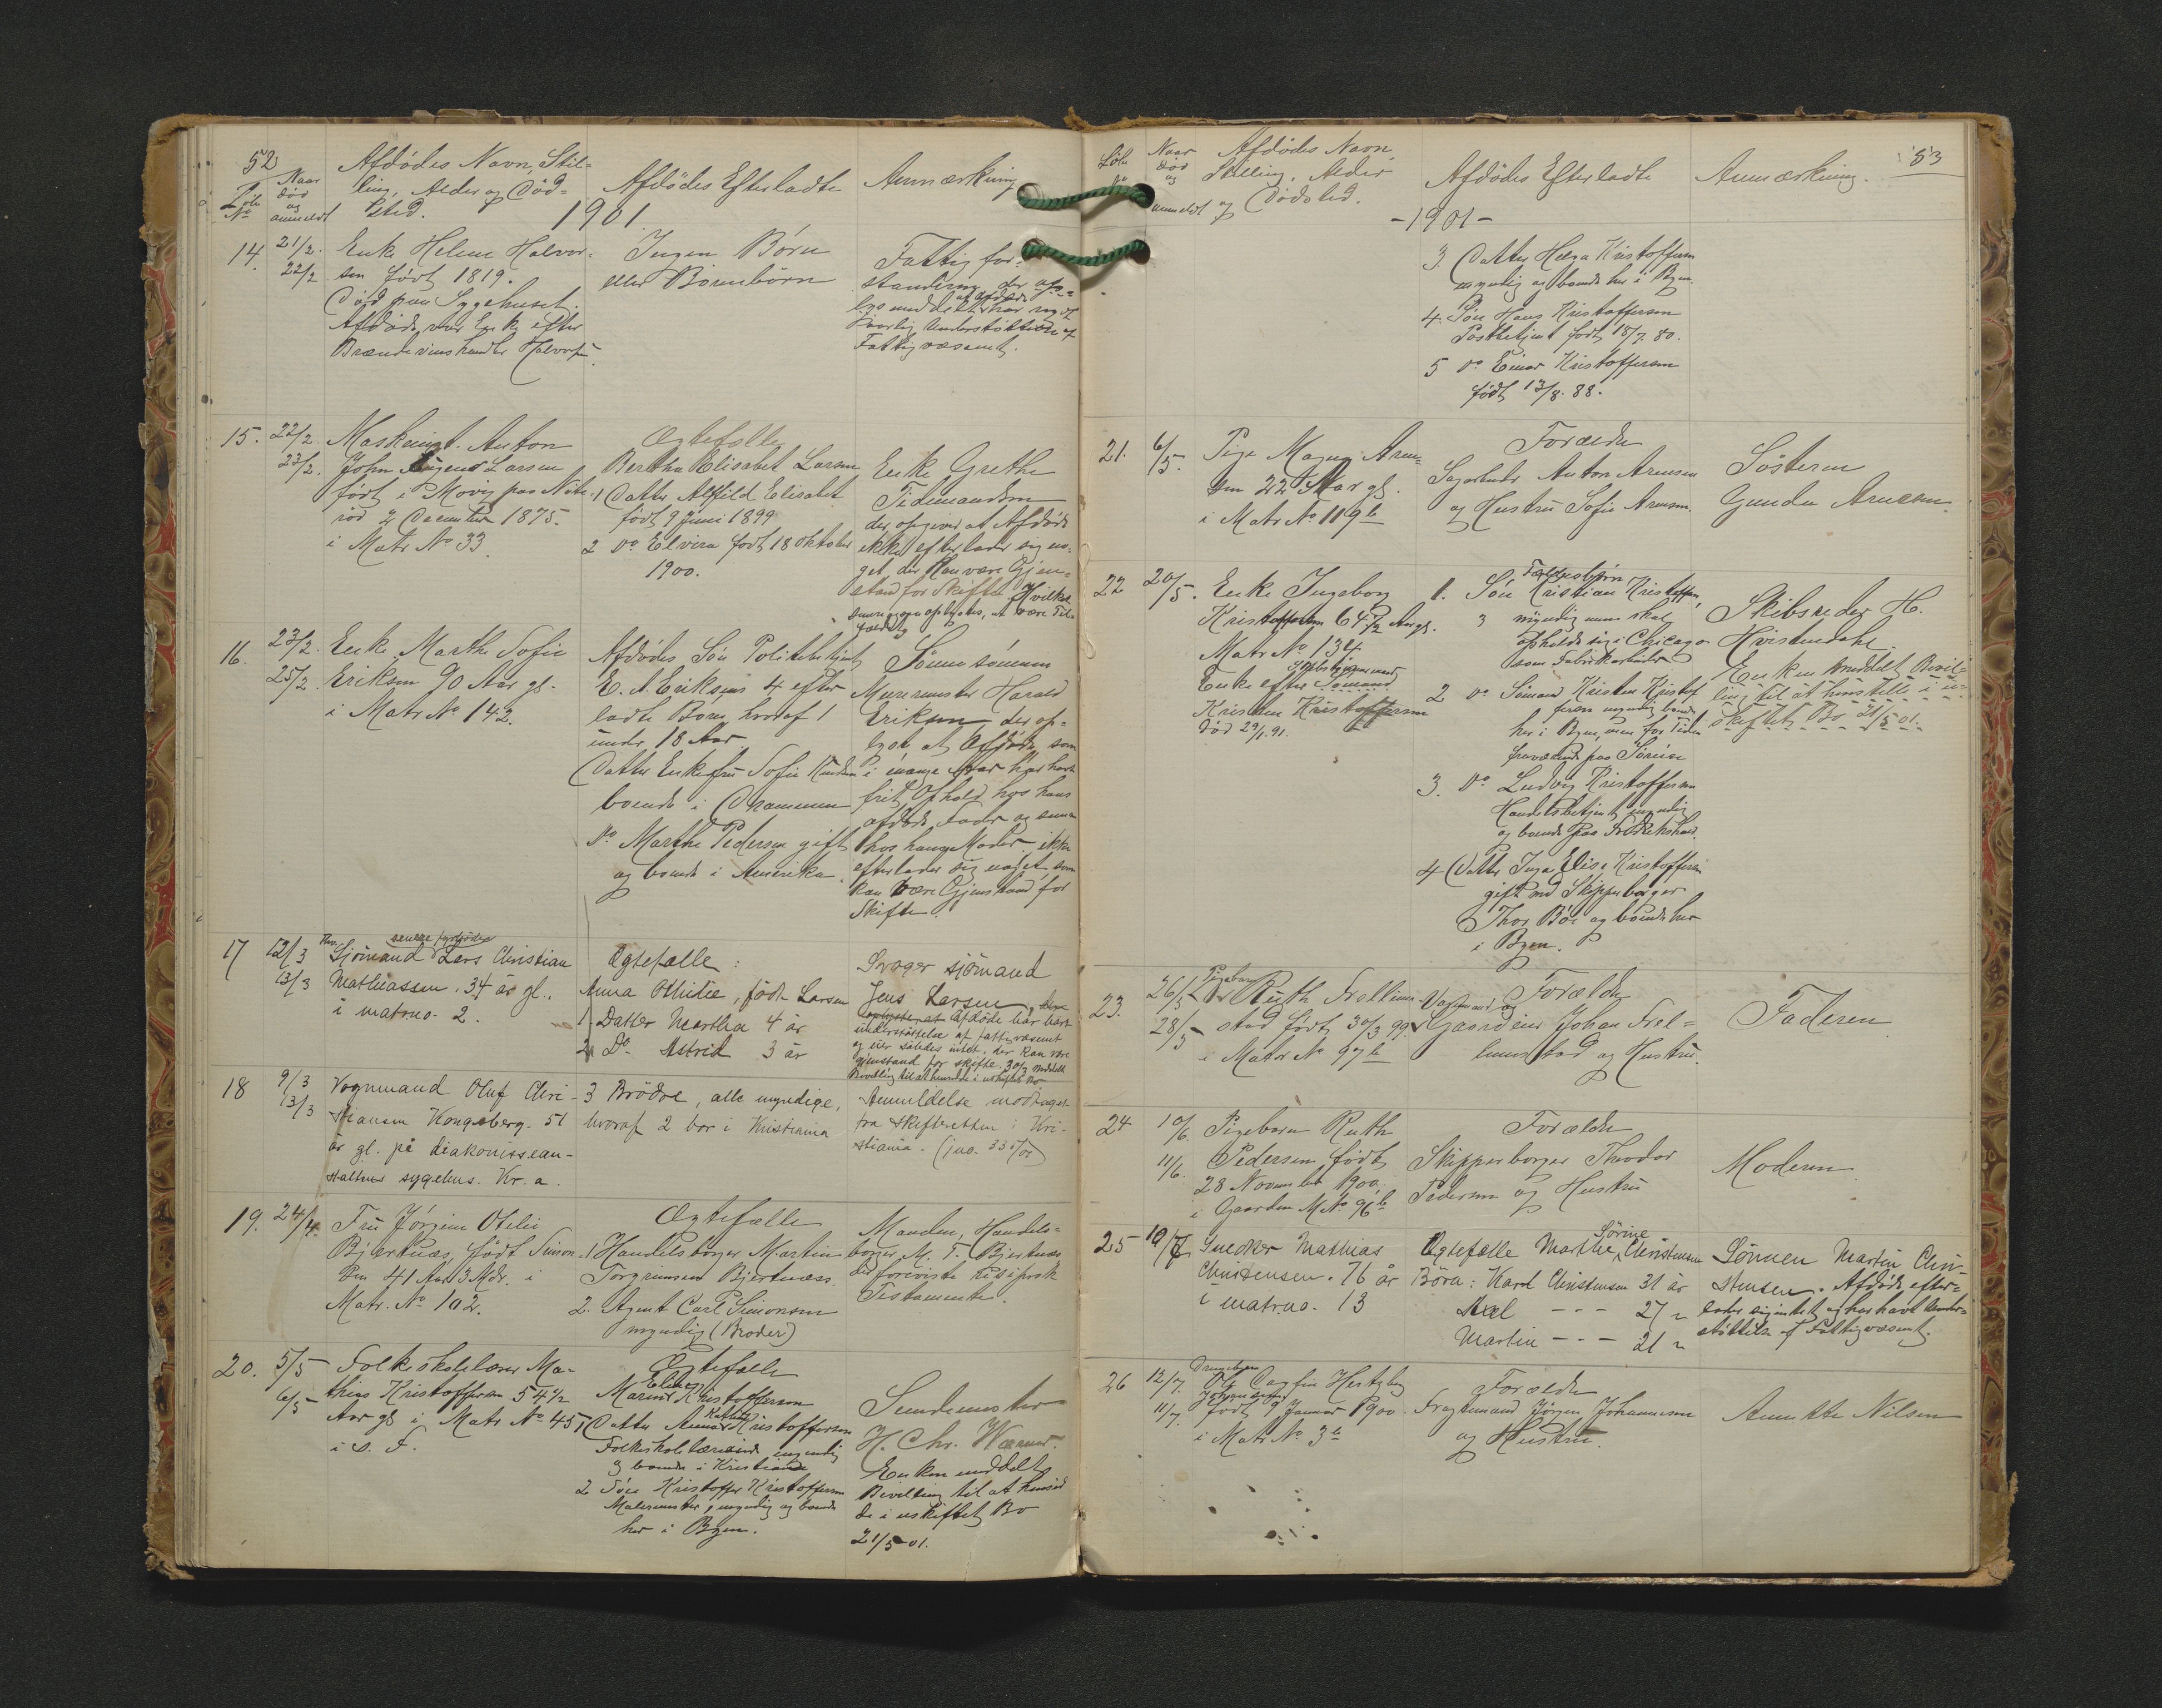 52
Löbe No
Naar död og anmeldt
Afdödes Navn, Stil-
ling, Alder og Död-
sted.
Afdödes Efterladte
Anmærkning
1901
14.
21/2.
22/2
Enke Helene Halvor-
sen födt 1819.
Död paa Sygehuset.
Afdöde var Enke efter
Brændevinshandler Halvorsen.
Ingen Börn
eller Börnebörn
Fattigfor-
standeren, der op-
lyse
at Afdöde
har
Understöttelse af
Fattigvæsenet.
15.
22/2
23/2.
Anton
John Larsen
födt i
2 December 1875.
i Matr No 33.
Ægtefælle
Bertha Elisabet Larsen
1 Datter Alfild Elisabet
födt 9 Juni 1899
2 Do Elvira födt 18 Oktober
1900.
Enke Grethe
Tidemandsen
der opgiver at Afdöde
ikke efterlader sig no-
get, der kan være Gjen-
stand for Skifte. Hvilket
senere ogsaa oplystes, at være Til-
fældet
16.
23/2.
25/2.
Enke Marthe Sofie
Eriksen 90 Aar gl.
i Matr No 142.
Afdödes Sön Politibetjent
E. A. Eriksens 4 efter-
ladte Börn, hvoraf 1
under 18 Aar
Datter Enkefru Sofie Knudsen
boende i Drammen
Do Marthe Pedersen gift
og boende i Amerika.
Sönnesönnen
Murermester Harald
Eriksen, der op-
lyste, at Afdöde, som
i mange Aar har havt
frit Ophold hos hans
afdöde Fader og senere
hos hans Moder, ikke
efterlader sig noget som
kan være Gjenstand for
Skifte.
17
12/3
13/3
Sjömand Lars Christian
Mathiassen. 34 år gl.
i matrno. 2.
Ægtefælle:
Anna Othilie, födt Larsen
1 Datter Martha 4 år
2 Do Astrid 3 år
Svoger sjömand
Jens Larsen,
oplyste at Afdöde har havt
understöttelse af fattigvæsenet
og eier således intet, der kan være
gjenstand for skifte. 30/3 meddelt
Bevilling til at hensidde i uskiftet Bo
18
9/3
13/3
Vognmand Oluf Chri-
stiansen Kongsberg. 51
år gl. på diakonissean-
staltens sygehus. Kr.a.
3 Brödre, alle myndige,
hvoraf 2 bor i Kristiania
Anmeldelse modtaget
fra skifteretten i Kri-
stiania. (jno. 335/01)
19.
24/4.
Fru Jörgine Otelie
Bjertnæs, födt Simon-
sen 41 Aar 3 Mdr. i
Matr. No 102.
Ægtefælle
1 Handelsborger Martin
Torgrimsen Bjertnæss.
2. Agent Carl Simonsen
myndig (Broder)
Manden, Handels-
borger M. T. Bjertnæs
der foreviste Resiprokt
Testamente.
20.
5/5
6/5
Folkeskolelærer Ma-
thias Kristoffersen 54 1/2
Aar gl i Matr No 45
i S. F.
Ægtefælle
Eline
Marine Kristoffersen
1 Datter Anna Kristoffersen
Folkeskolelærerinde myndig
og boende i Kristiania
2 Sön Kristoffer Kristoffersen
Malermester, myndig og boende
her i Byen.
H. Chr. Warner.
Enken meddelt
Bevilling til at hensid-
de i uskiftet Bo
21/5 01.
Löbe No
Naar död og anmeldt
Afdödes Navn,
Stilling, Alder
og Dödsted.
Afdödes Efterladte
Anmærkning.
53
-1901-
3. Datter Helga Kristoffersen
myndig og boende her i Byen
4. Sön Hans Kristoffersen
Postbetjent födt 18/7. 80.
5 Do Einar Kristoffersen
födt 13/8. 88.
21.
6/5.
Pige Magna Arne-
sen 22 Aar gl.
i Matr No 119 b
Forældre
Sagarbeider Anton Arnesen
og Hustru Sofie Arnesen.
Sösteren
Gunda Arnesen.
22
20/5.
Enke Ingeborg
Kristoffersen 64 1/2 Aar gl.
Matr No 134
Enke efter Sömand
Kristen Kristoffersen
död 29/1. 91.
Fællesbörn
1. Sön Kristian Kristoffersen
myndig men skal
opholde sig i Chicago
som Fabrikarbeider
2 Do Sömand Kristen Kristof-
fersen myndig boende
her i Byen, men for Tiden
fraværende paa Söreise
3. Do Ludvig Kristoffersen
Handelsbetjent myndig
og boende paa Fredrikshald.
4 Datter Inga Elise Kristoffersen
gift med Skipperborger
Thor Böe og boende her
i Byen.
Skibsreder H.
Hvistendahl.
Enken meddelt Bevil-
ling til at hensitte i u-
skiftet Bo 21/5 01.
23.
26/5
28/5
Pigebarn
Ruth Frellum-
stad födt 30/3 99.
i Matr No 97 b
Forældre
Vognmand og
Gaardeier Johan Frel-
lumstad og Hustru.
Faderen
24
10/6.
11/6.
Pigebarn Ruth
Pedersen födt
28 November 1900.
i Gaarden M No 96 b
Forældre
Skipperborger Theodor
Pedersen og Hustru
Moderen
25
10/7
Snedker Mathias
Christensen. 76 år
i matrno. 13
Sörine
Ægtefælle Marthe Christensen
Börn: Karl Christensen 31 år
Axel - - - 27 "
Martin - - - 21 "
Sönnen Martin Chri-
stensen. Afdöde efter-
lader sig intet og har havt Under-
stöttelse af Fattigvæsenet.
26
12/7.
11/7.
Drengebarn
Ole Dagfin Hertzberg
Johannesen
födt 9 Januar 1900.
i Matr No 3 b
Forældre
Fragtemand Jörgen Johannesen
og Hustru.
Annette Nilsen